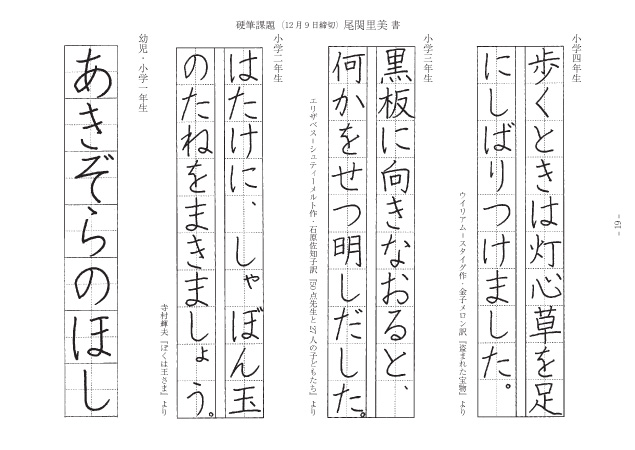 硬筆課題（12月9日締切）尾関里美 書
小学四年生
歩くときは灯心草を足
にしばりつけました。
ウイリアム＝スタイグ作・金子メロン訳『盗まれた宝物』より
小学三年生
黒板に向きなおると、
何かをせつ明しだした。
エリザベス＝シュティーメルト作・石原佐知子訳『50点先生と27人の子どもたち』より
小学二年生
はたけに、しゃぼん玉
のたねをまきましょう。
寺村輝夫『ぼくは王さま』より
幼児・小学一年生
あきぞらのほし
- 19 -